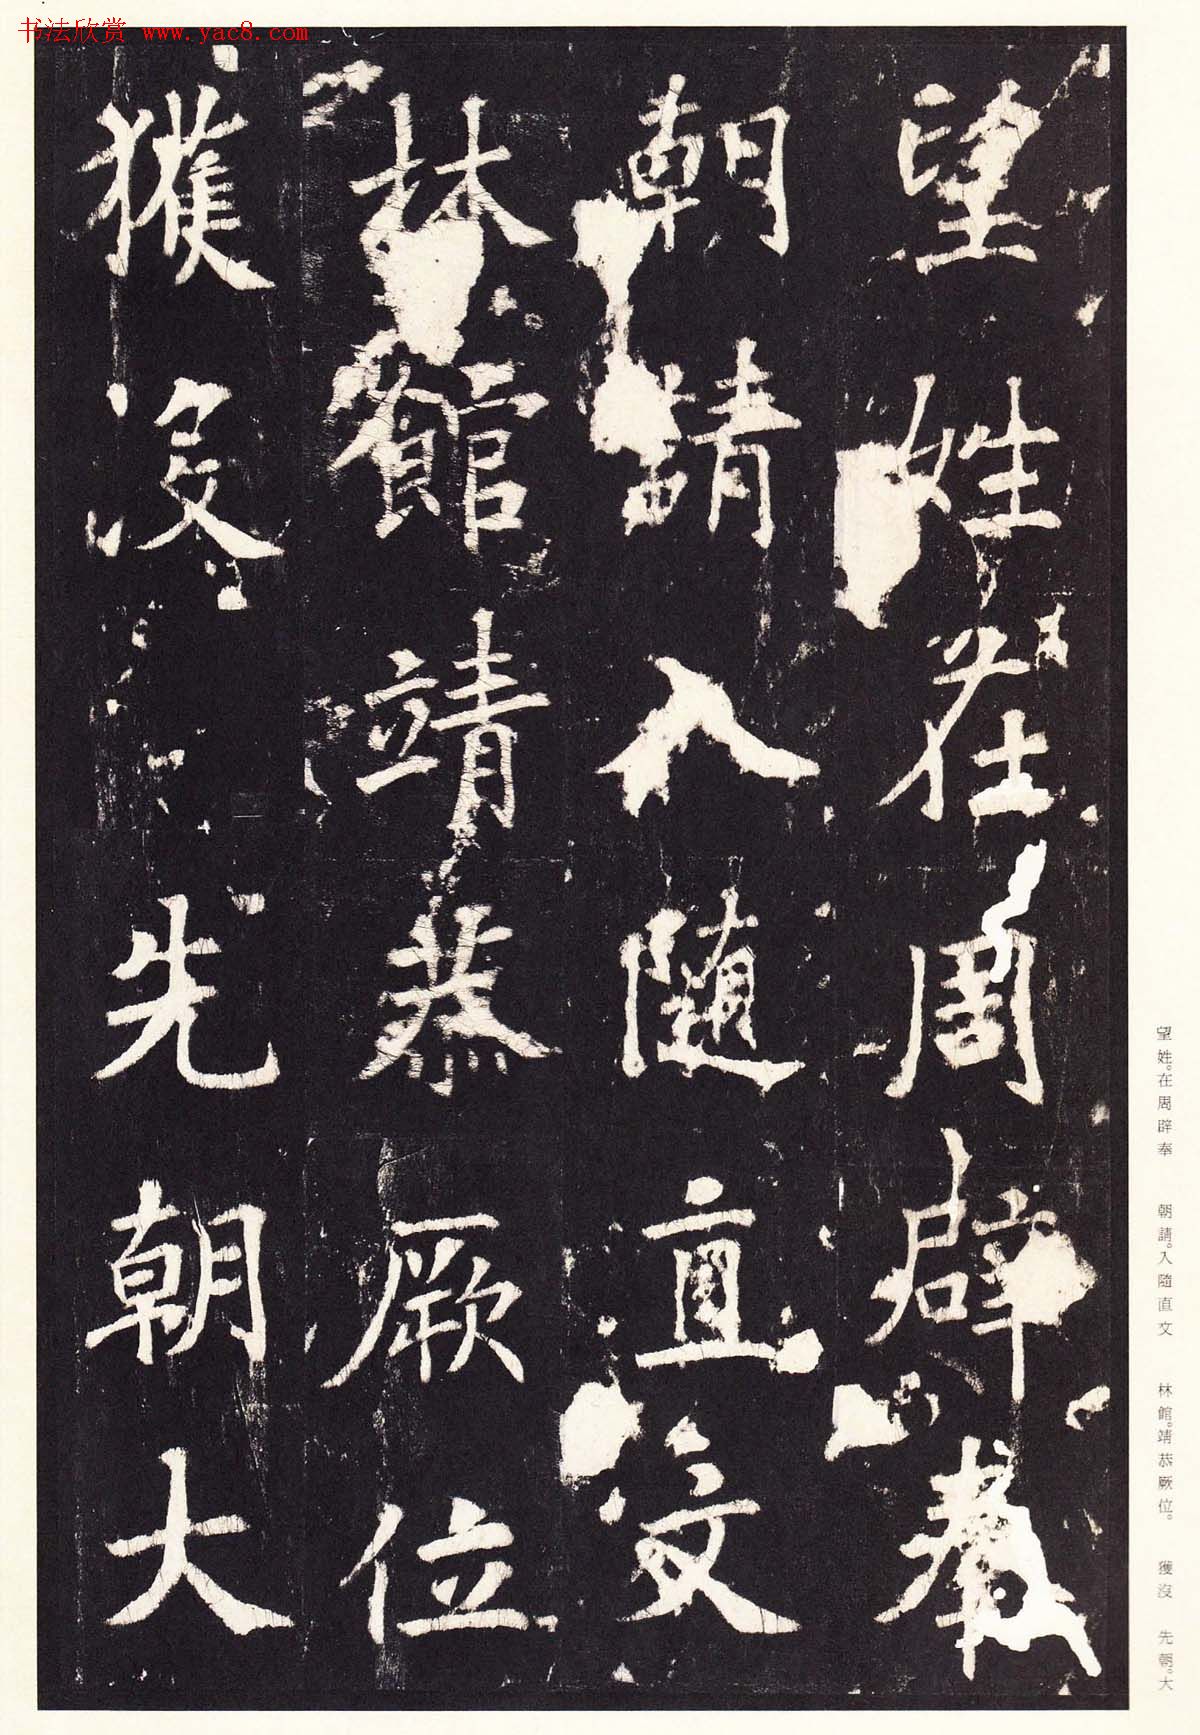 书法欣赏 www.yac8.com
望姓在周辟奉
朝請入隨直文
林館靖恭厥位
獲沒先朝大
望姓。在周辟奉 朝請。入隨直文 林館。靖恭厥位。 獲沒 先朝。大